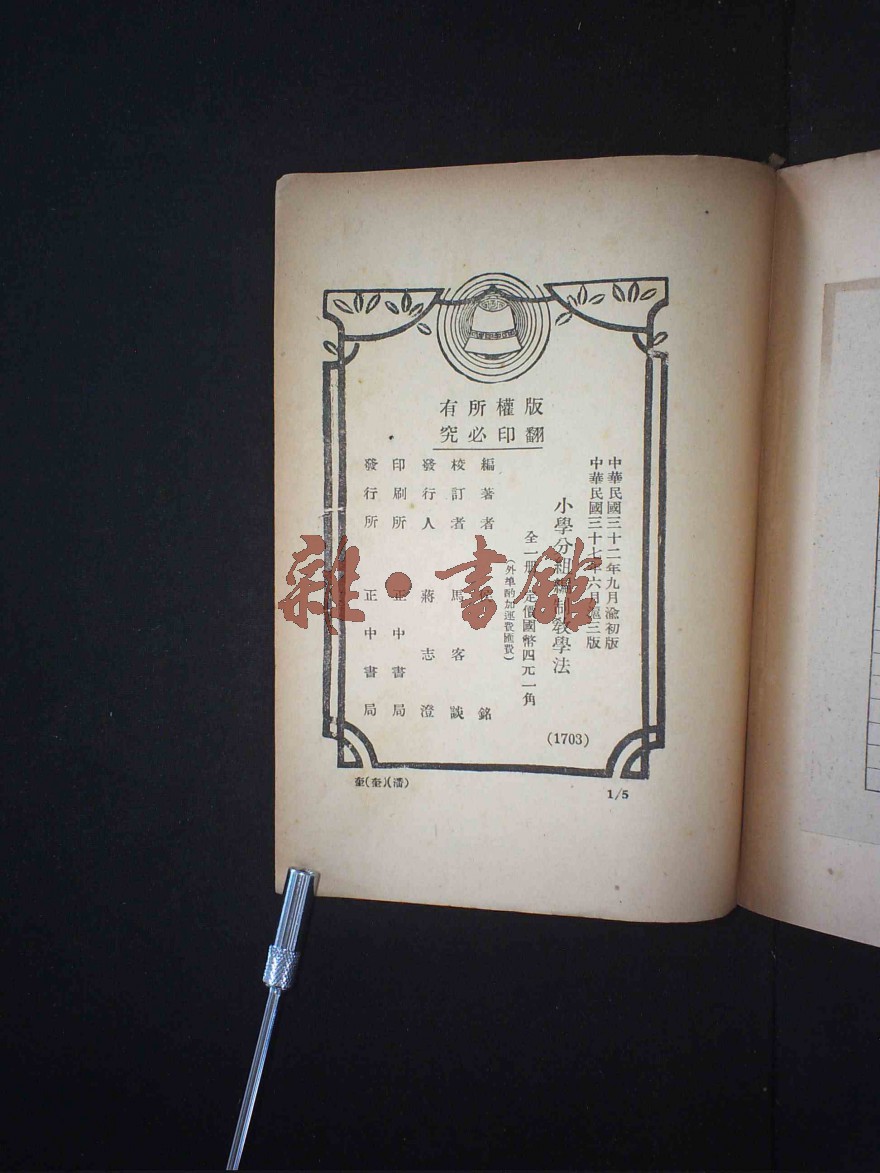 版權所有
翻印必究
中華民國三十二年九月渝初版
中華民國三十七年六月滬三版
小學分組編制教學法
全一冊 定價國幣四元一角
(外埠酌加運費匯費)
編著者 銘
校訂者 馬客談
發行人 蔣志澄
印刷所 正中書局
發行所 正中書局
(1703)
奎(奎)(潘)
1/5
雜·書館